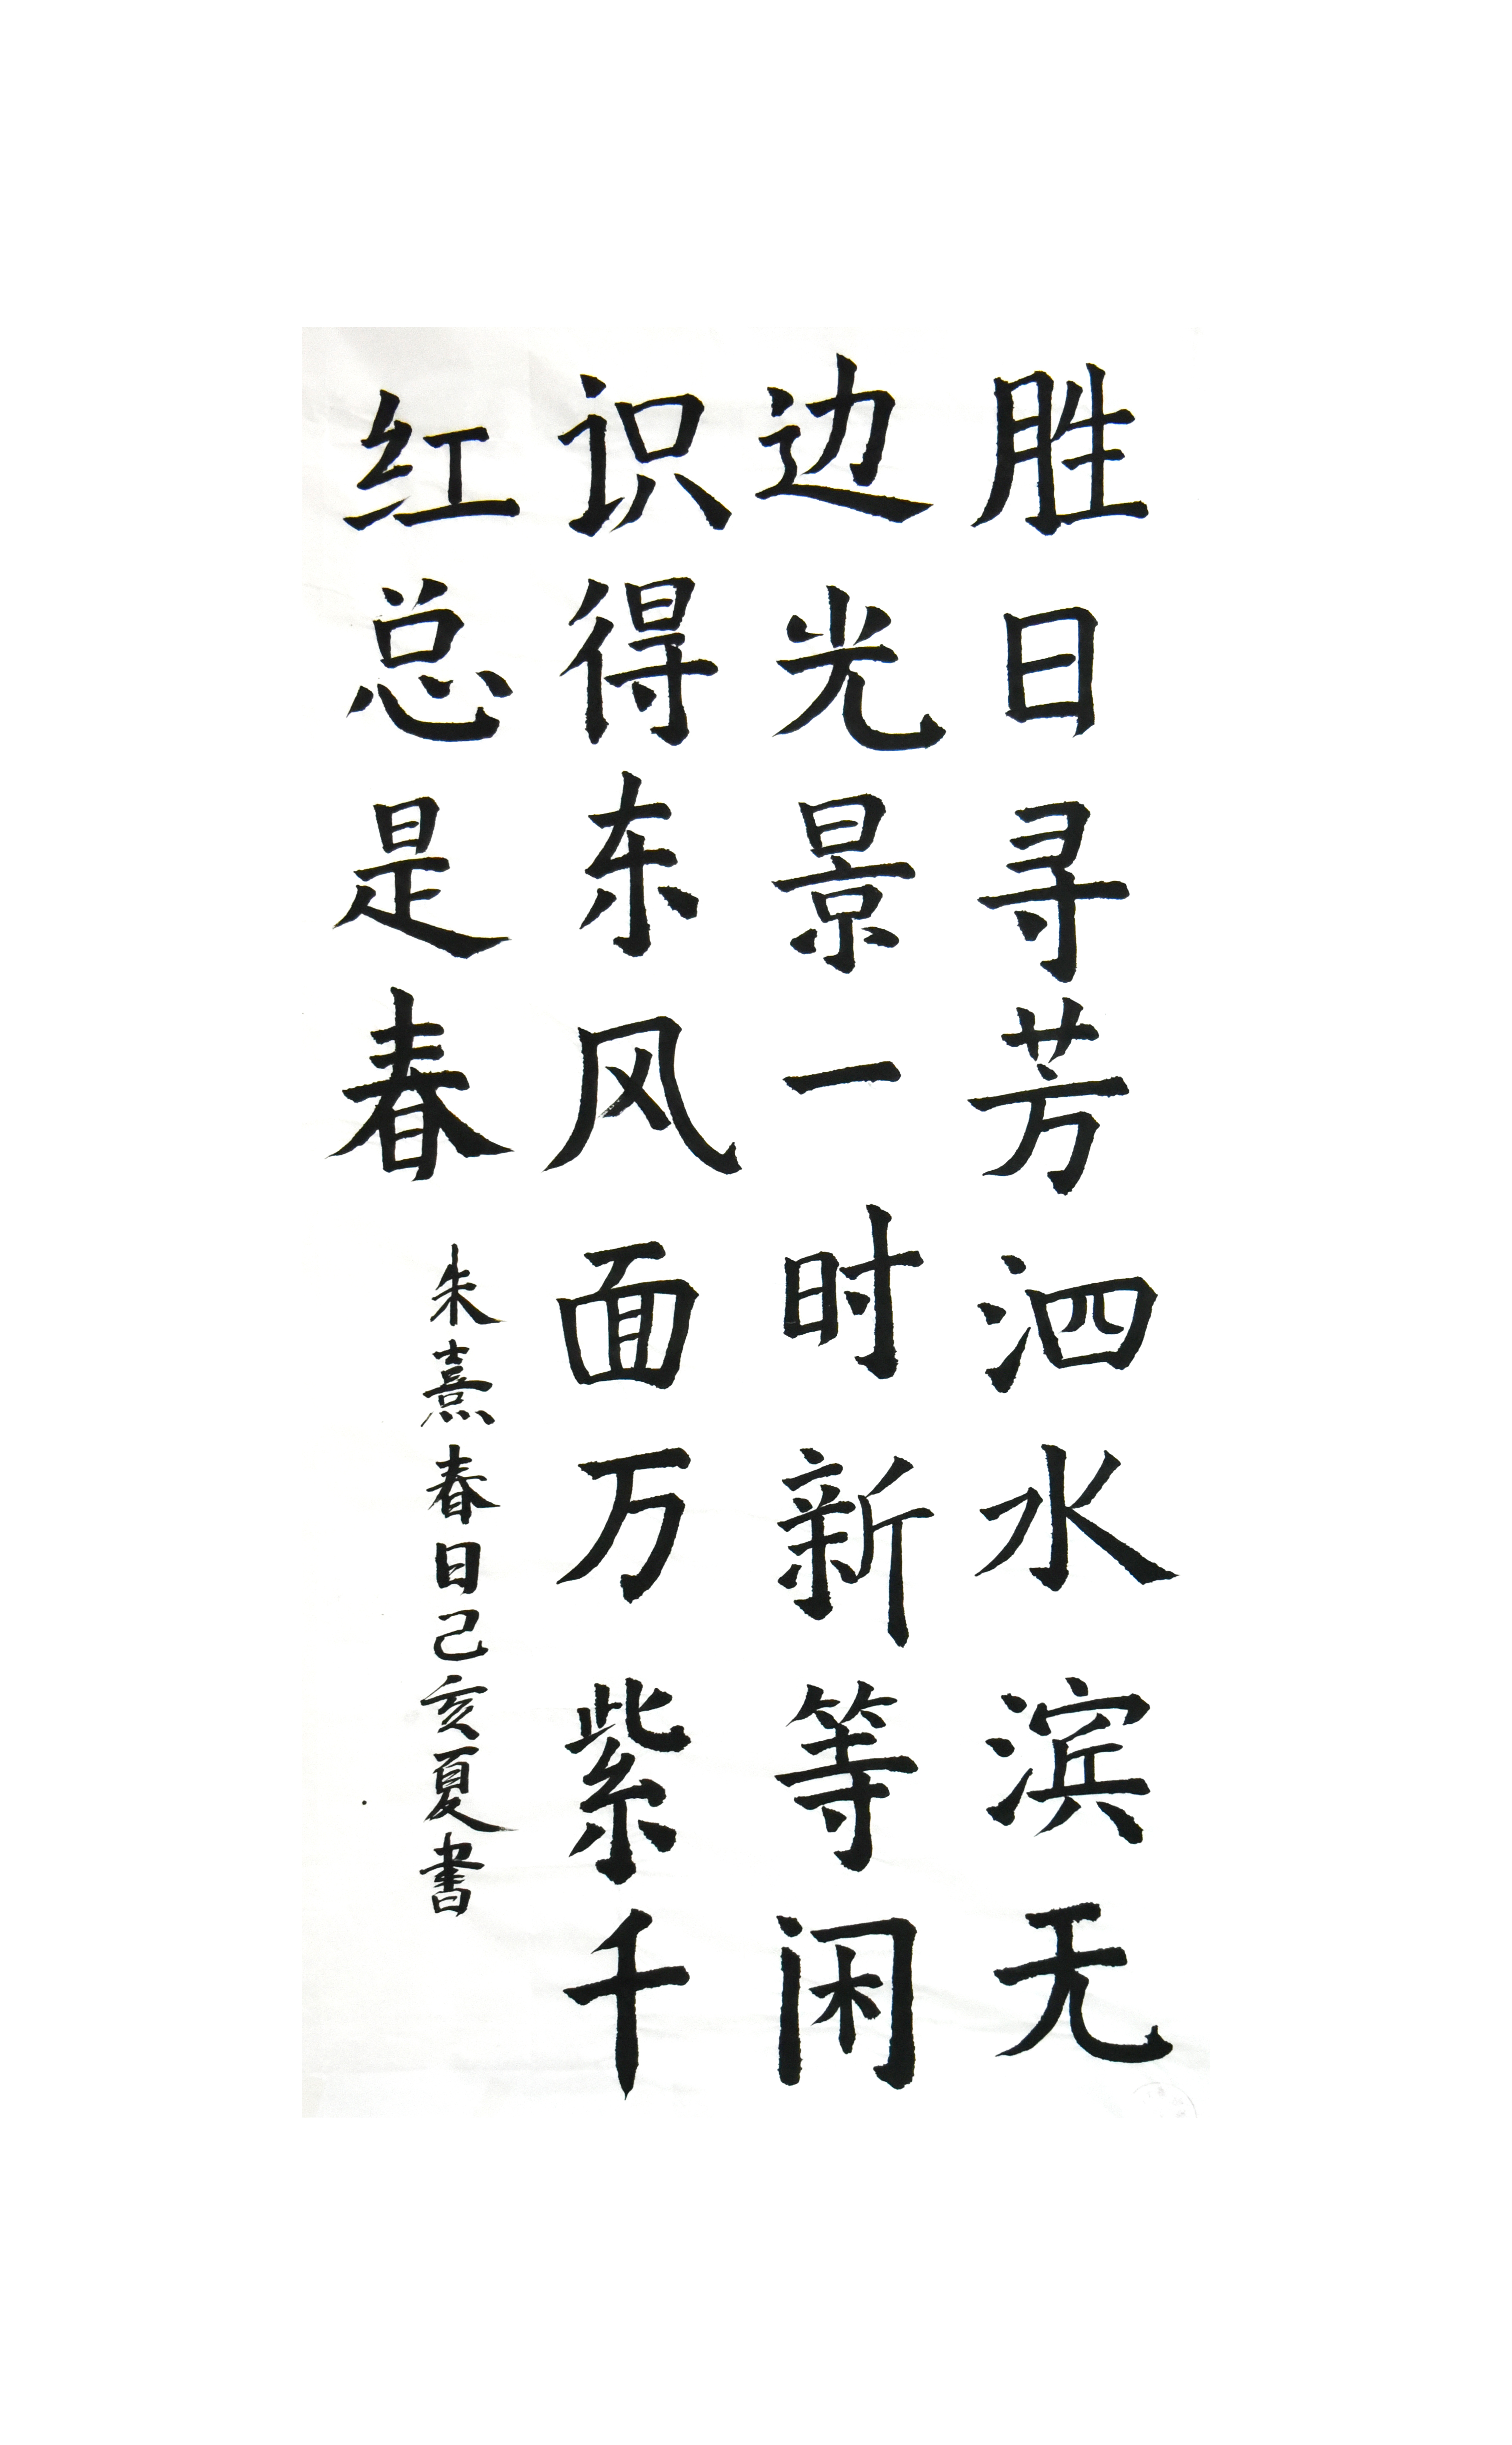 胜日寻芳泗水滨无
边光景一时新等闲
识得东风面万紫千
红总是春
朱熹春日己亥夏書